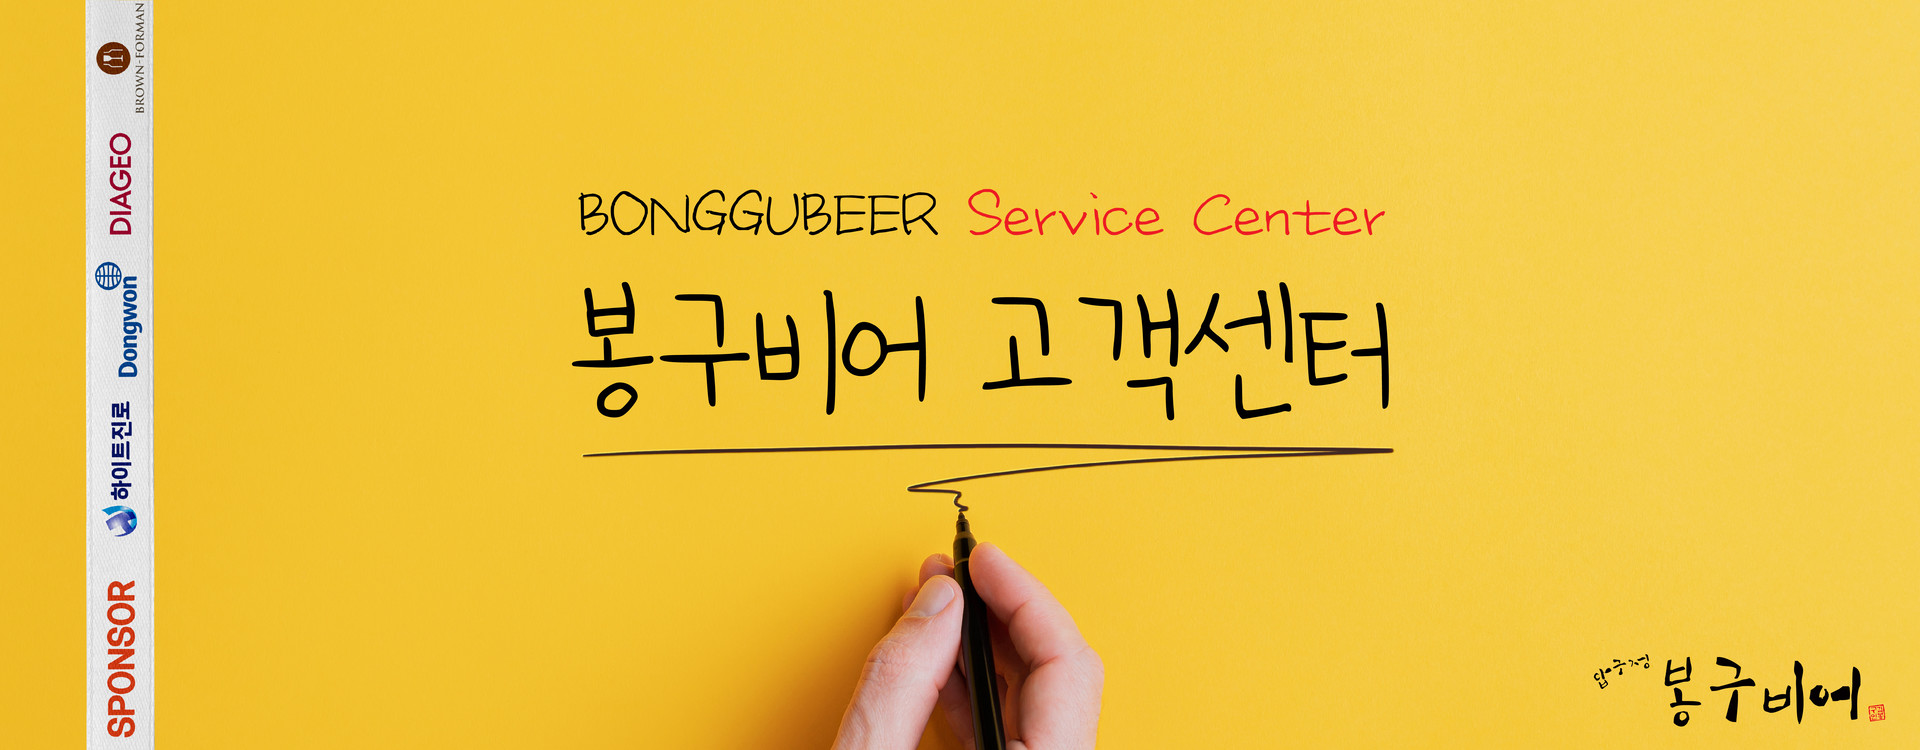 BROWN-FORMAN
DIAGEO
Dongwon
하이트진로
SPONSOR
BONGGUBEER Service Center
봉구비어 고객센터
압구정
봉구비어